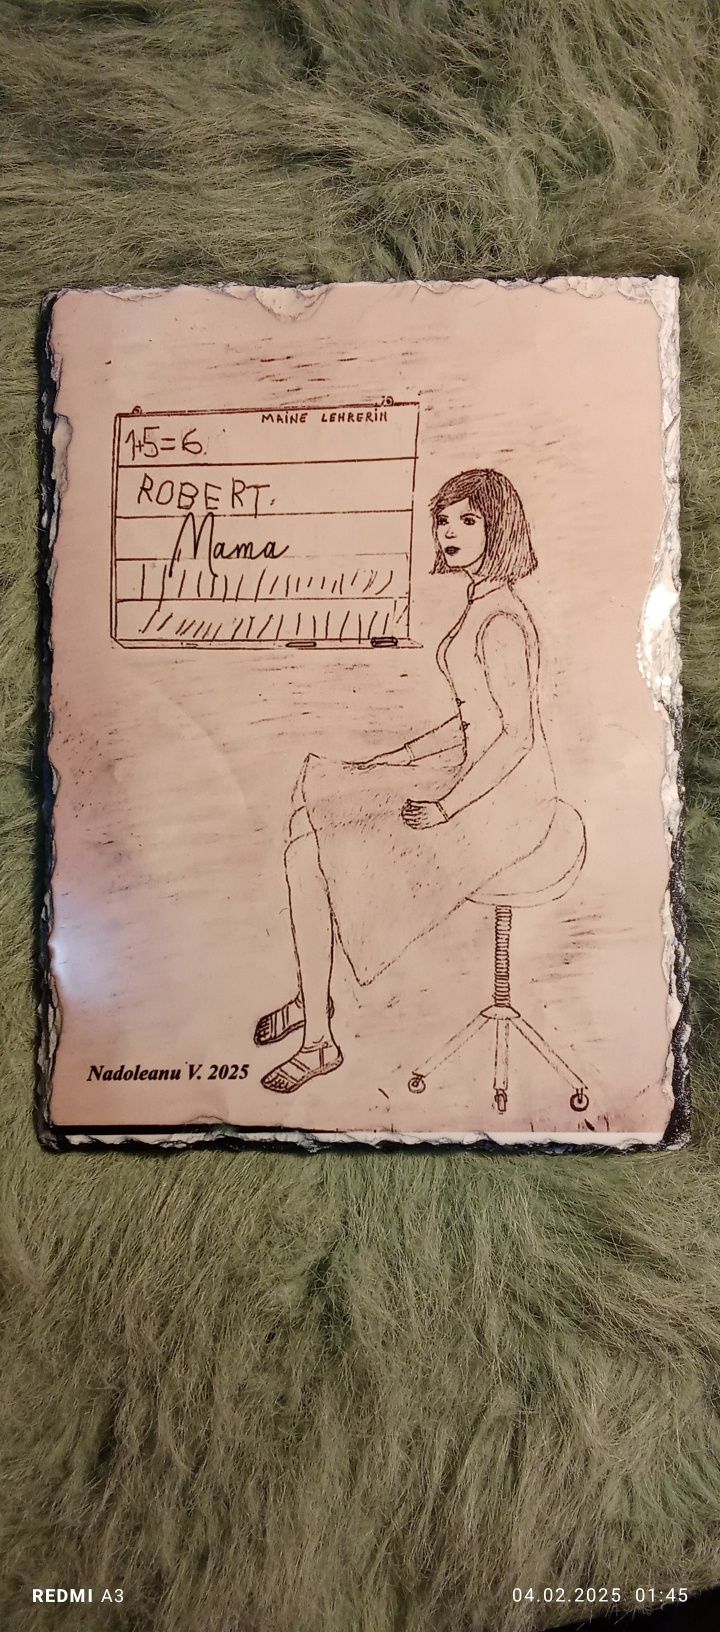 MAINE LEHRERIN
1+5=6.
ROBERT.
Mama
Nadoleanu V. 2025
REDMI A3
04.02.2025 01:45